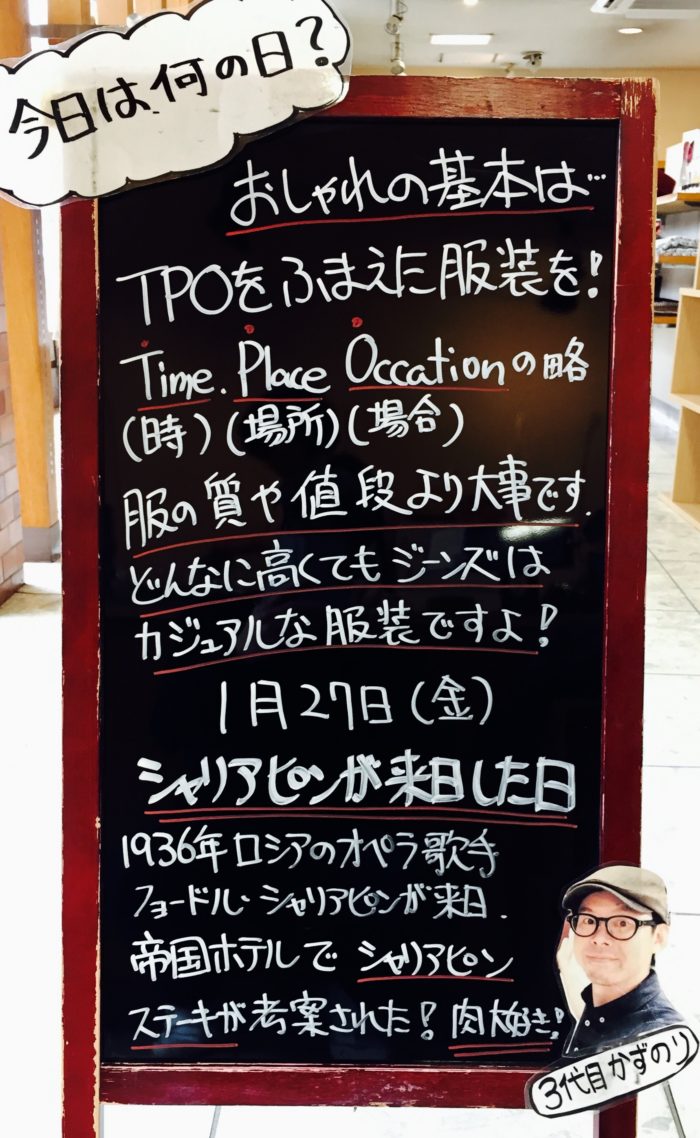 今日は何の日?
おしゃれの基本は…
TPOをふまえた服装を!
Time. Place Occationの略
(時)(場所)(場合)
服の質や値段より大事です.
どんなに高くてもジーンズは
カジュアルな服装ですよ!
1月27日(金)
シャリアピンが来日した日
1936年ロシアのオペラ歌手
フョードル・シャリアピンが来日.
帝国ホテルでシャリアピン
ステーキが考案された!肉大好き!
3代目かずのり